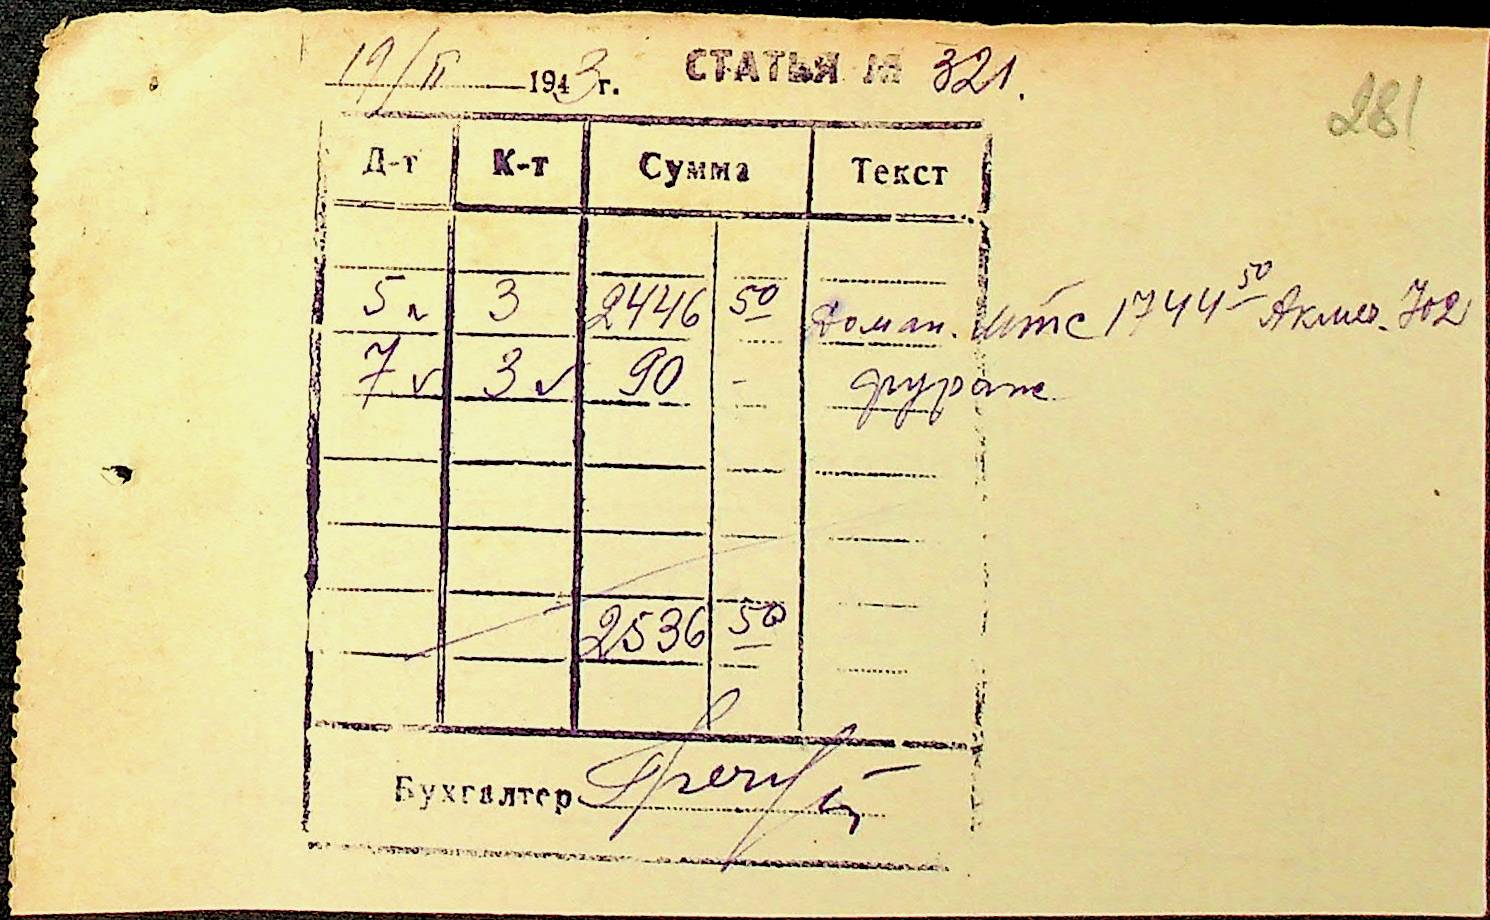 19/II 1943 г. СТАТЬЯ № 321.
281
Д-т К-т Сумма Текст
5 3 2446 50 Доман. мтс 1744 50 Акмеч. 702
7 ✓ 3 ✓ 90 - фураж
2536 50
Бухгалтер